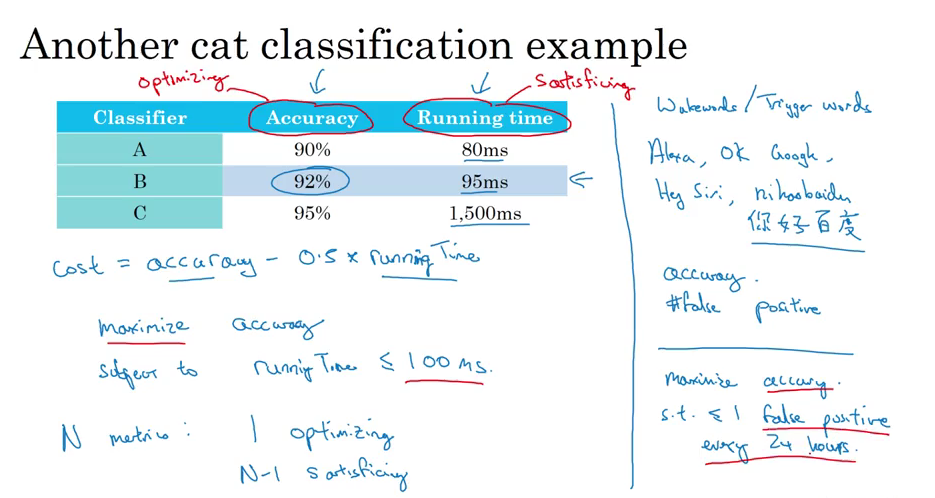 Another cat classification example
optimizing
satisficing
Classifier Accuracy Running time
A 90% 80ms
B 92% 95ms
C 95% 1,500ms
cost = accuracy - 0.5 x runningTime
maximize accuracy
subject to runningTime ≤ 100 ms.
N metrics: 1 optimizing
N-1 satisficing
Wakewords / Trigger words
Alexa, OK Google,
Hey Siri, nihaobaidu
你好百度
accuracy.
#false positive
maximize accuracy.
s.t. ≤ 1 false positive
every 24 hours.